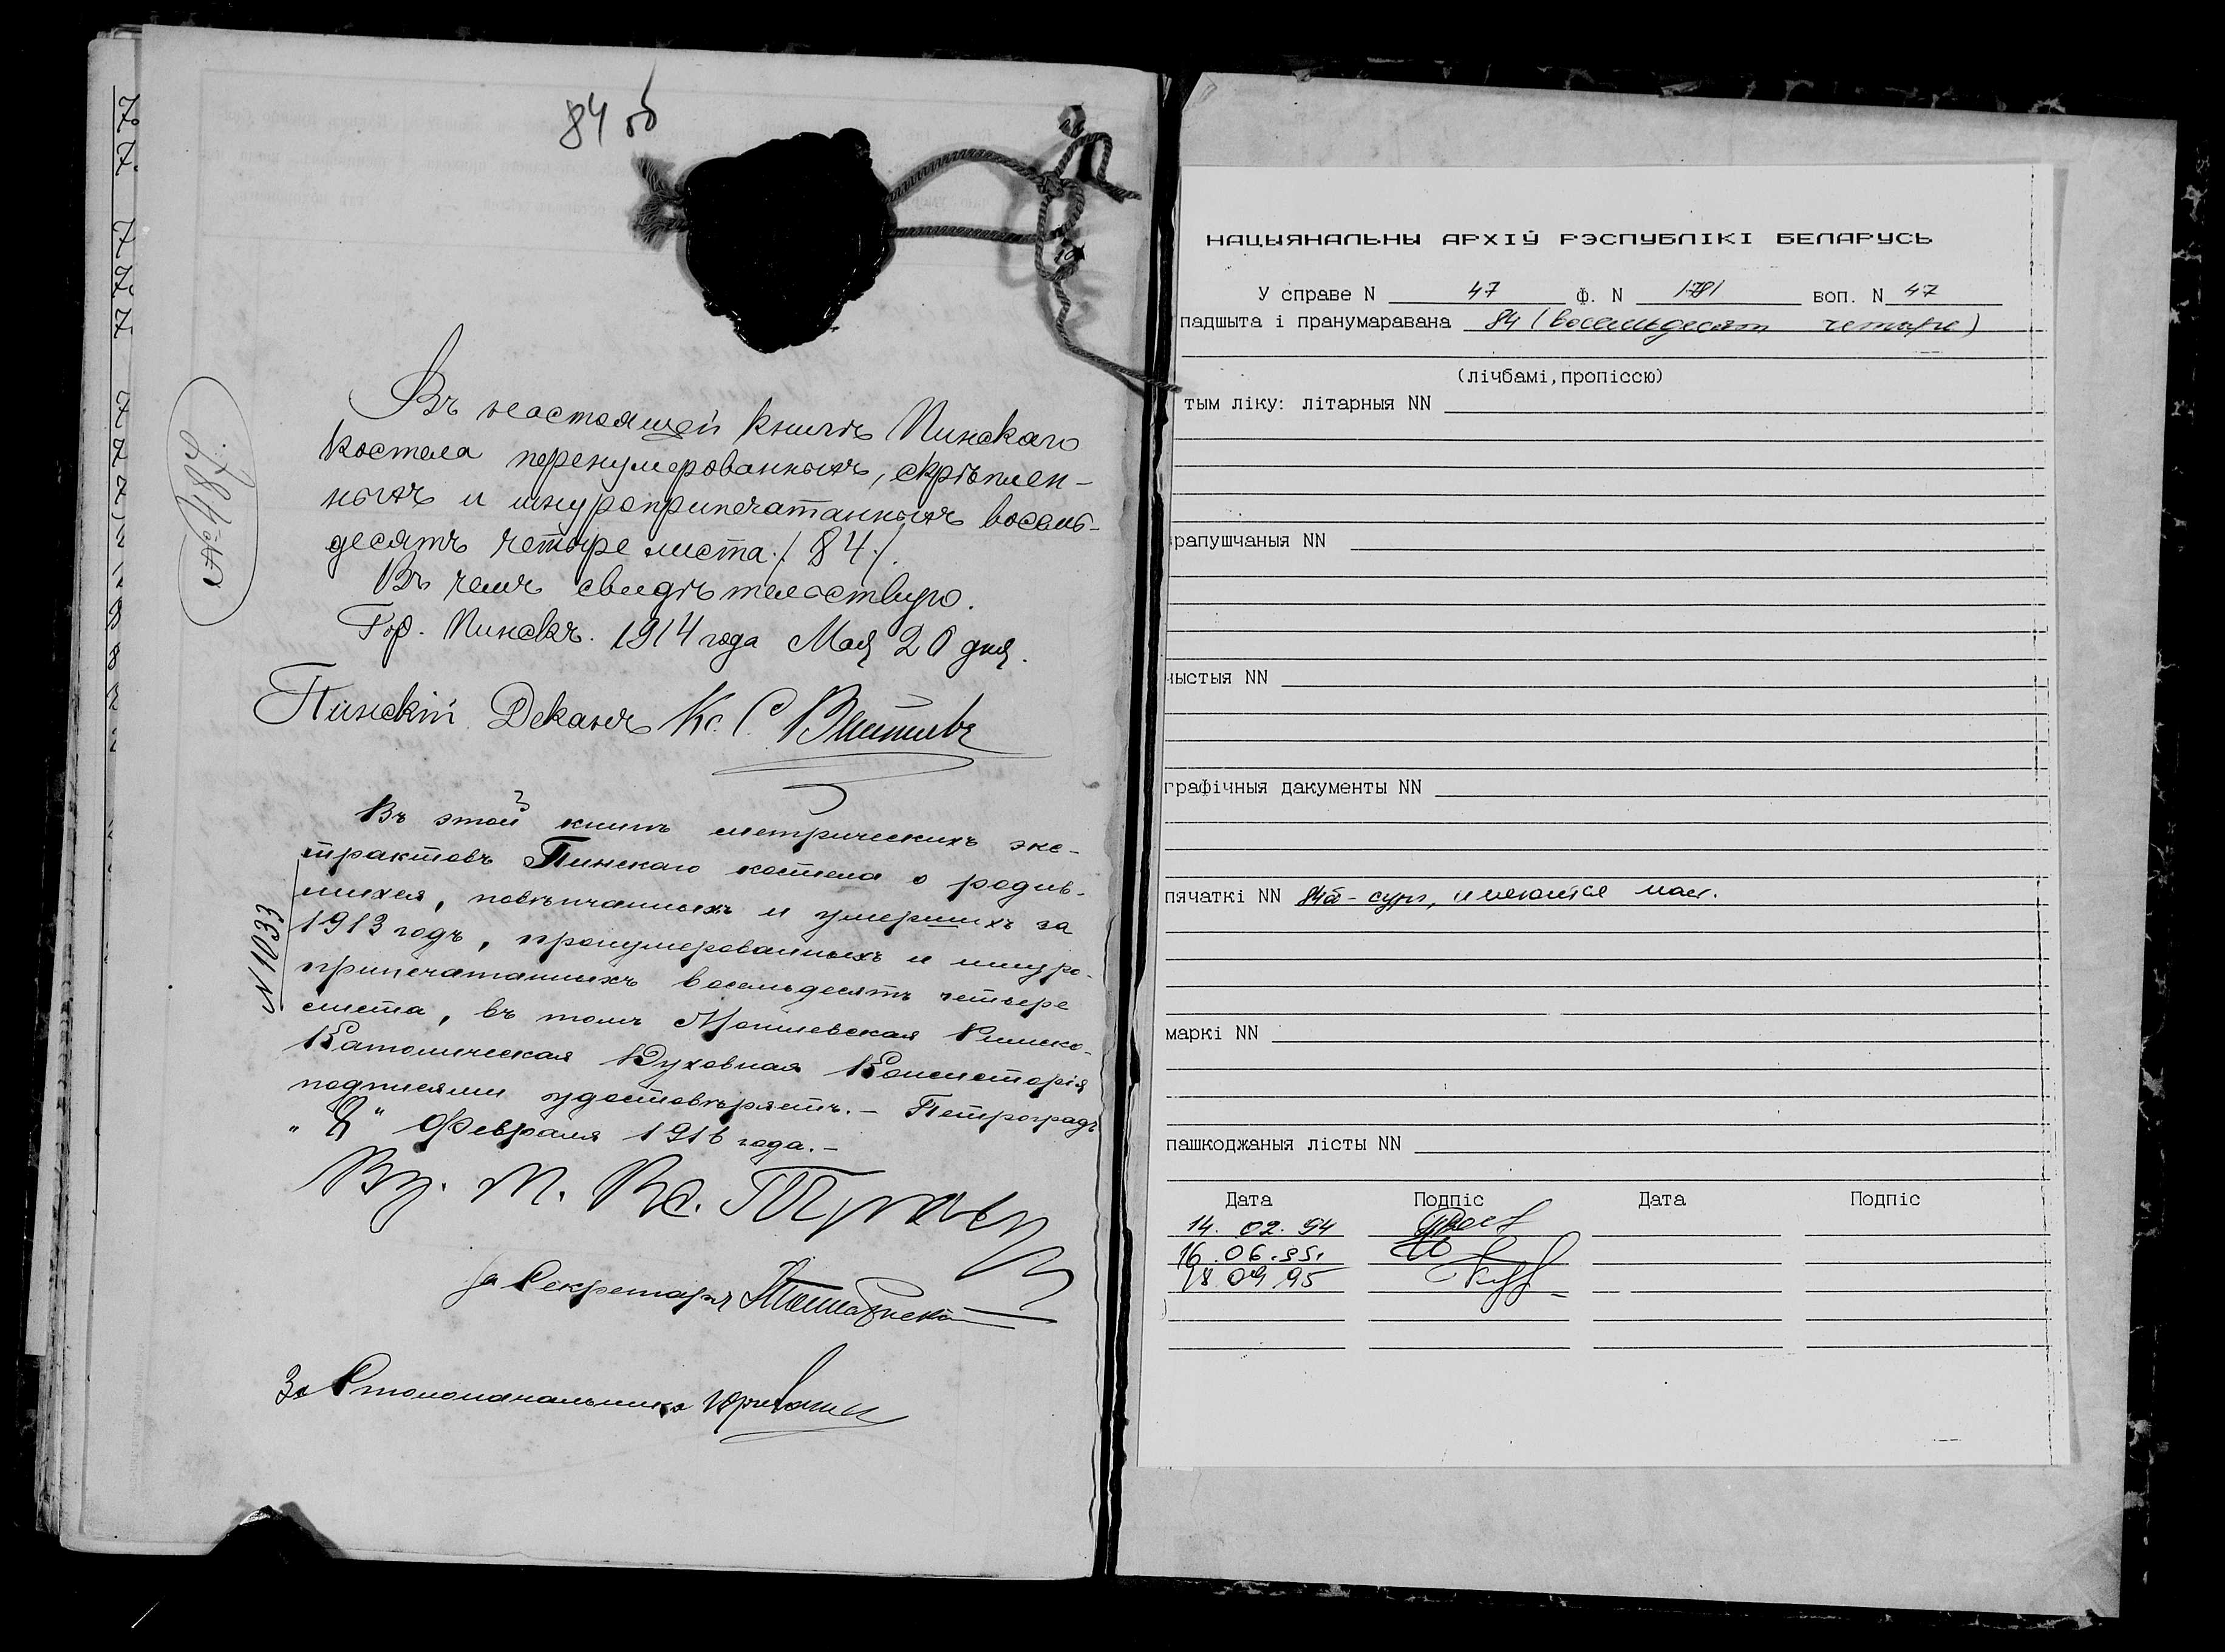 84 об
Въ настоящей книгѣ Пинскаго
костела перенумерованныхъ, скрѣплен-
ныхъ и шнуроприпечатанныхъ восемь-
десятъ четыре листа. / 84 /.
Въ чемъ свидѣтельствую.
Гор. Пинскъ. 1914 года Мая 20 дня.
Пинскій Деканъ Кс. С.
№ 482
Въ этой книгѣ метрическихъ экс-
трактовъ Пинскаго костела о родив-
шихся, повѣнчанныхъ и умершихъ за
1913 годъ, пронумерованныхъ и шнуро-
припечатанныхъ восемьдесятъ четыре
листа, въ томъ Могилевская Римско-
Католическая Духовная Консисторія
подписями удостовѣряетъ. – Петроградъ
Февраля 1916 года. –
N 1033
За Секретаря
За Столоначальника
НАЦЫЯНАЛЬНЫ АРХІЎ РЭСПУБЛІКІ БЕЛАРУСЬ
У справе N 47 ф. N 1781 воп. N 47
падшыта і пранумаравана 84 (восемьдесят четыре)
(лічбамі, пропіссю)
тым ліку: літарныя NN
рапушчаныя NN
чыстыя NN
графічныя дакументы NN
пячаткі NN 84об - сург, имеются
маркі NN
пашкоджаныя лісты NN
Дата Подпіс Дата Подпіс
14. 02. 94
16. 06. 95
18 09 95